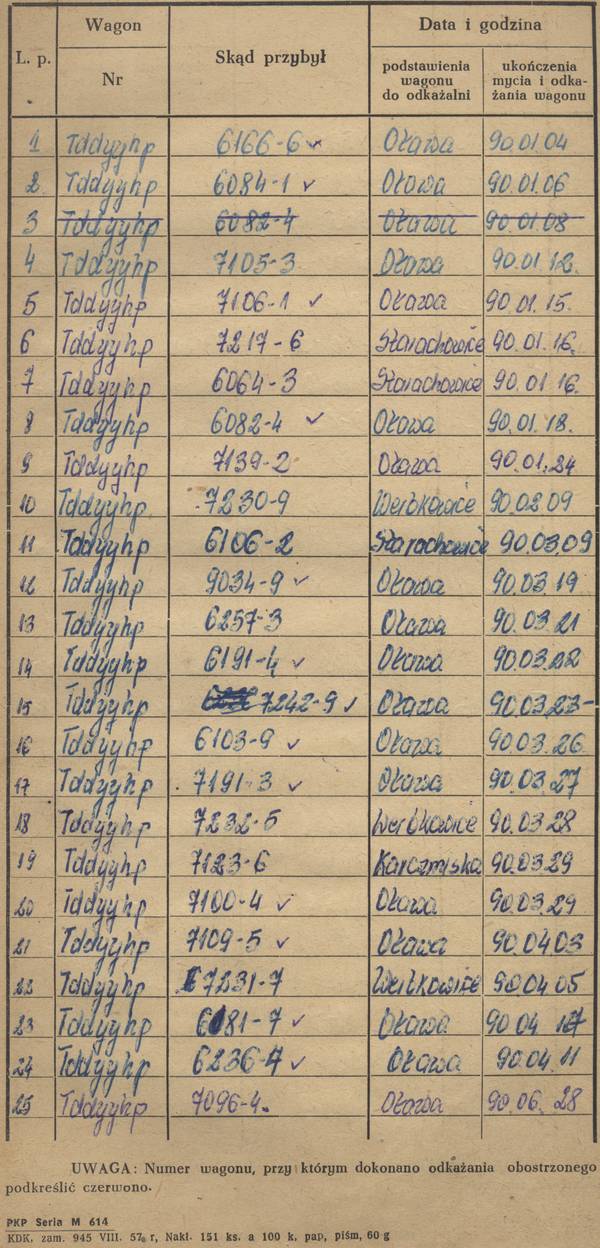 L. p. Wagon Nr Skąd przybył Data i godzina
podstawienia wagonu do odkażalni ukończenia mycia i odka-żania wagonu
1 Tddyyhp 6166-6 ✓ Oława 90.01.04
2 Tddyyhp 6084-1 ✓ Oława 90.01.06
3 Tddyyhp 6082-4 Oława 90.01.08
4 Tddyyhp 7105-3 Oława 90.01.12.
5 Tddyyhp 7106-1 ✓ Oława 90.01.15.
6 Tddyyhp 7217-6 Starachowice 90.01.16.
7 Tddyyhp 6064-3 Starachowice 90.01.16.
8 Tddyyhp 6082-4 ✓ Oława 90.01.18.
9 Tddyyhp 7139-2 Oława 90.01.24
10 Tddyyhp 7230-9 Werbkowice 90.02.09
11 Tddyyhp 6106-2 Starachowice 90.03.09
12 Tddyyhp 9034-9 ✓ Oława 90.03.19
13 Tddyyhp 6257-3 Oława 90.03.21
14 Tddyyhp 6191-4 ✓ Oława 90.03.22
15 Tddyyhp 7242-9 ✓ Oława 90.03.23-
16 Tddyyhp 6103-9 ✓ Oława 90.03.26
17 Tddyyhp 7191-3 ✓ Oława 90.03.27
18 Tddyyhp 7232-5 Werbkowice 90.03.28
19 Tddyyhp 7123-6 Karczmiska 90.03.29
20 Tddyyhp 7100-4 ✓ Oława 90.03.29
21 Tddyyhp 7109-5 ✓ Oława 90.04.03
22 Tddyyhp 7231-7 Werbkowice 90.04.05
23 Tddyyhp 6181-7 ✓ Oława 90.04
24 Tddyyhp 6236-7 ✓ Oława 90.04.11
25 Tddyyhp 7096-4. Oława 90.06.28
UWAGA: Numer wagonu, przy którym dokonano odkażania obostrzonego
podkreślić czerwono.
PKP Seria M 614
KDK. zam. 945 VIII. 57. r, Nakł. 151 ks. a 100 k, pap, piśm, 60 g